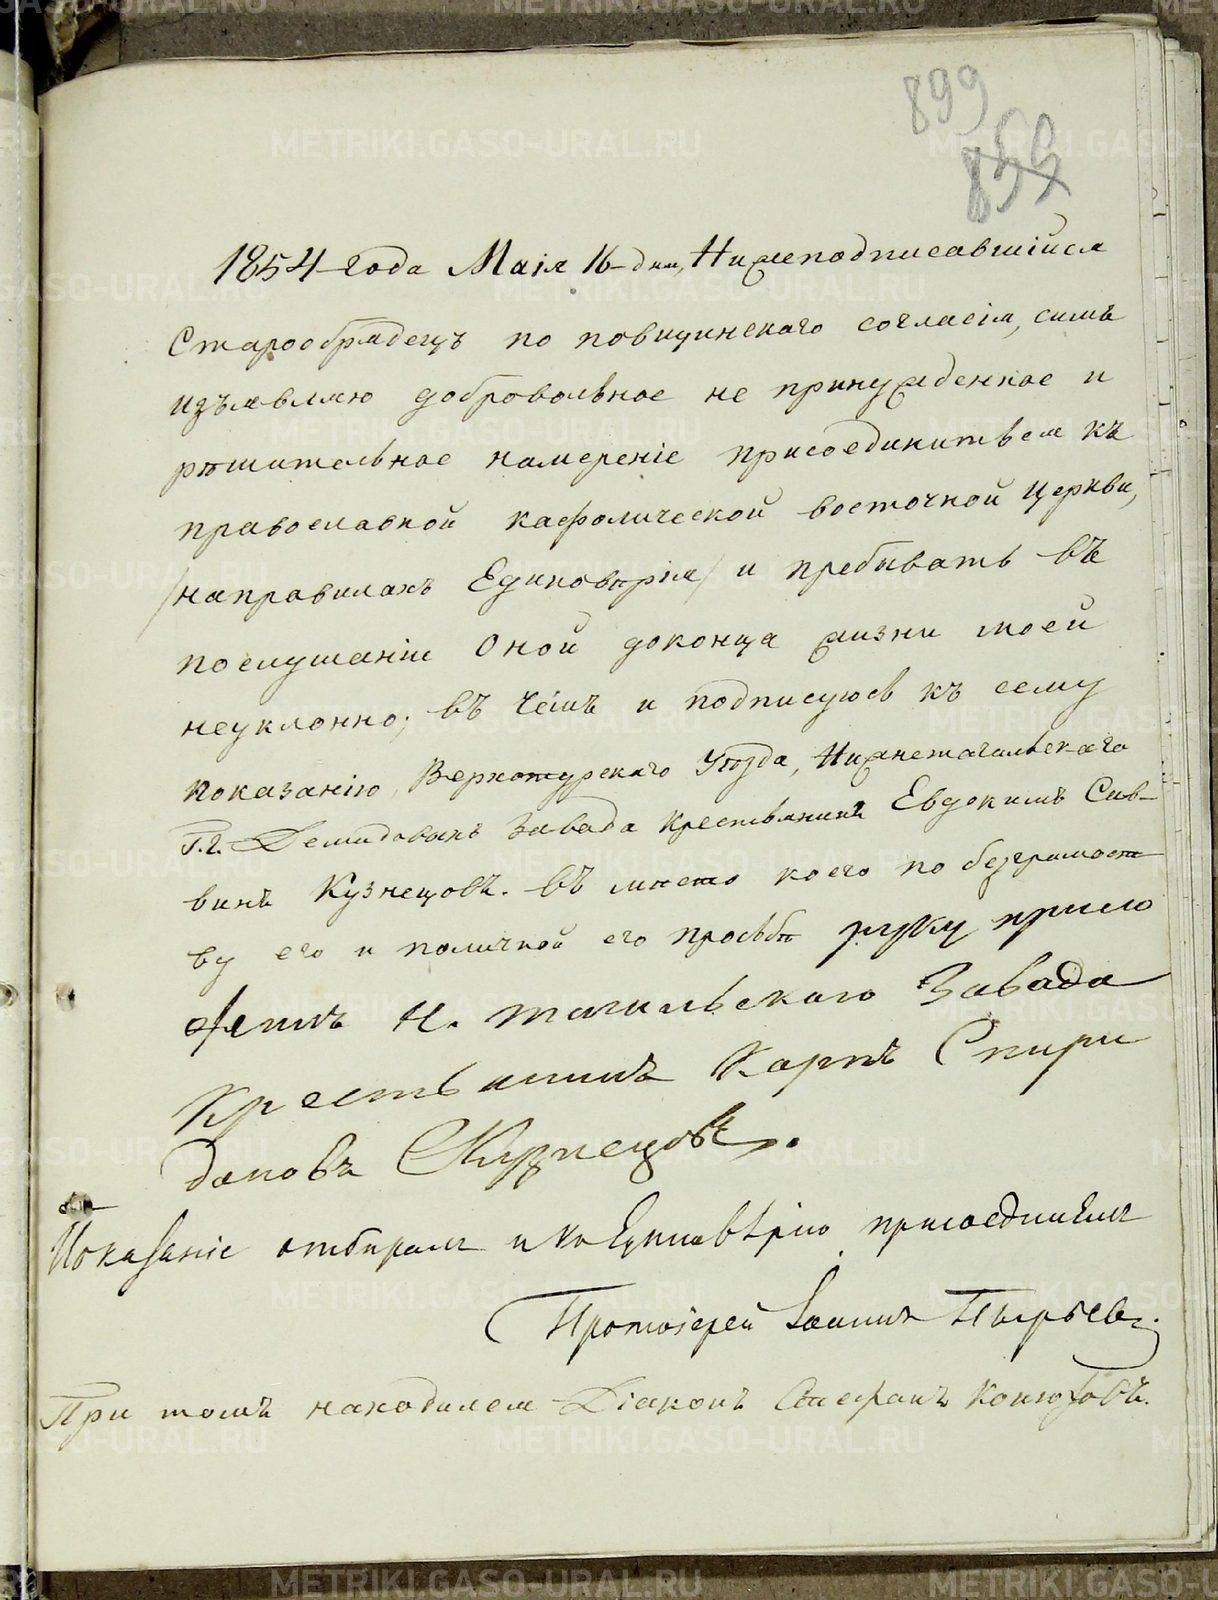 899
859
1854 года Маія 16 дня, Нижеподписавшійся
Старообрядецъ по повщинскаго согласія, симъ
изъявляю добровольное не принужденное и
рѣшительное намереніе присоединиться къ
православной кафолической восточной церкви,
/направилахъ Единовѣрія/ и пребывать въ
послушаніи Оной доконца жизни моей
неуклонно; въ чёмъ и подписуюсь къ сему
показанію, Верхотурскаго Уѣзда, Нижнетагильскаго
Г.г. Демидовыхъ Завода крестьянинъ Евдокимъ Сав-
винъ Кузнецовъ. въ место коего по безграмотст
ву его и поличной его прозьбѣ руку прило
жилъ Н. тагильскаго Завода
крестьянинъ Карпъ Спири
доновъ Кузнецовъ.
Показаніе отбиралъ и къ Единовѣрію присоединилъ
Протоіерей Іоаннъ Пырьевъ.
При томъ находился Діаконъ Стефанъ Конюховъ.
METRIKI.GASO-URAL.RU